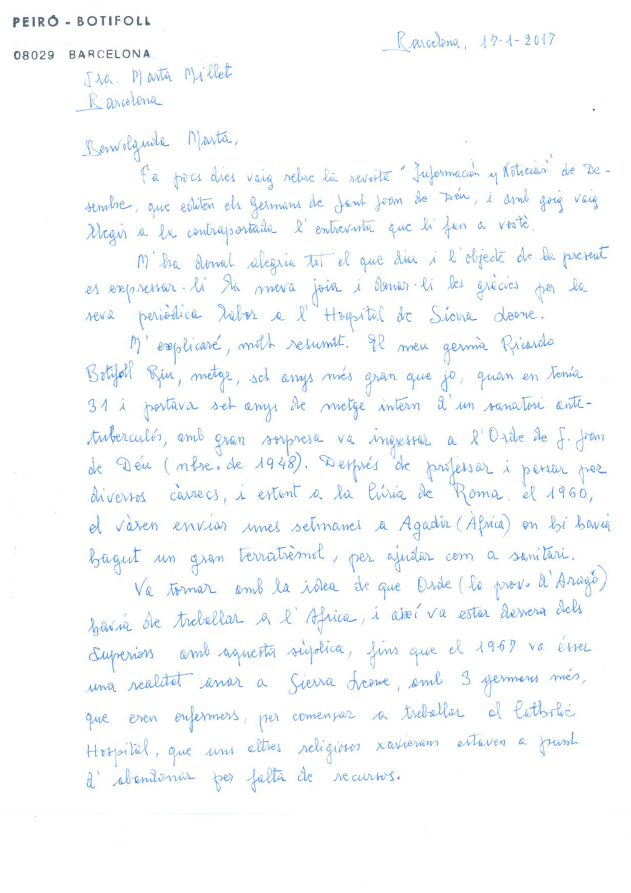 PEIRÓ - BOTIFOLL
08029 BARCELONA
Barcelona, 17-1-2017
Sra. Marta Millet
Barcelona
Benvolguda Marta,
Fa pocs dies vaig rebre la revista "Información y Noticias" de De-
sembre, que editen els Germans de Sant Joan de Déu, i amb goig vaig
llegir a la contraportada l'entrevista que li fan a vostè.
M'ha donat alegria tot el que diu i l'objecte de la present
es expressar-li la meva joia i donar-li les gràcies per la
seva periòdica labor a l'Hospital de Sierra Leone.
M'explicaré, molt resumit. El meu germà Ricardo
Botifoll Riu, metge, set anys més gran que jo, quan en tenía
31 i portava set anys de metge intern d'un sanatori anti-
tuberculós, amb gran sorpresa va ingressar a l'Orde de S. Joan
de Déu (nbre. de 1948). Després de professar i passar per
diversos càrrecs, i estant a la Cúria de Roma, el 1960,
el vàren enviar unes setmanes a Agadir (Àfrica) on hi havia
hagut un gran terratrèmol, per ajudar com a sanitari.
Va tornar amb la idea de que Orde (la prov. d'Aragó)
havia de treballar a l'Africa, i així va estar darrera dels
Superiors amb aquesta súplica, fins que el 1967 va ésser
una realitat anar a Sierra Leone, amb 3 germans més,
que eren enfermers, per començar a treballar al Catholic
Hospital, que uns altres religiosos xaverians estaven a punt
d'abandonar per falta de recursos.